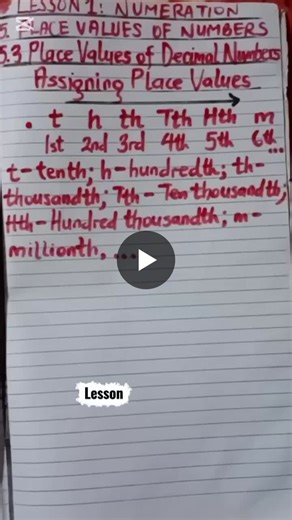 LESSON 1: NUMERATION
5. PLACE VALUES OF NUMBERS
5.3 Place Values of Decimal Numbers
Assigning Place Values
. t h th Tth Hth m
1st 2nd 3rd 4th 5th 6th...
t-tenth; h-hundredth; th-
thousandth; Tth-Ten thousandth;
Hth-Hundred thousandth; m-
millionth, ...
Lesson